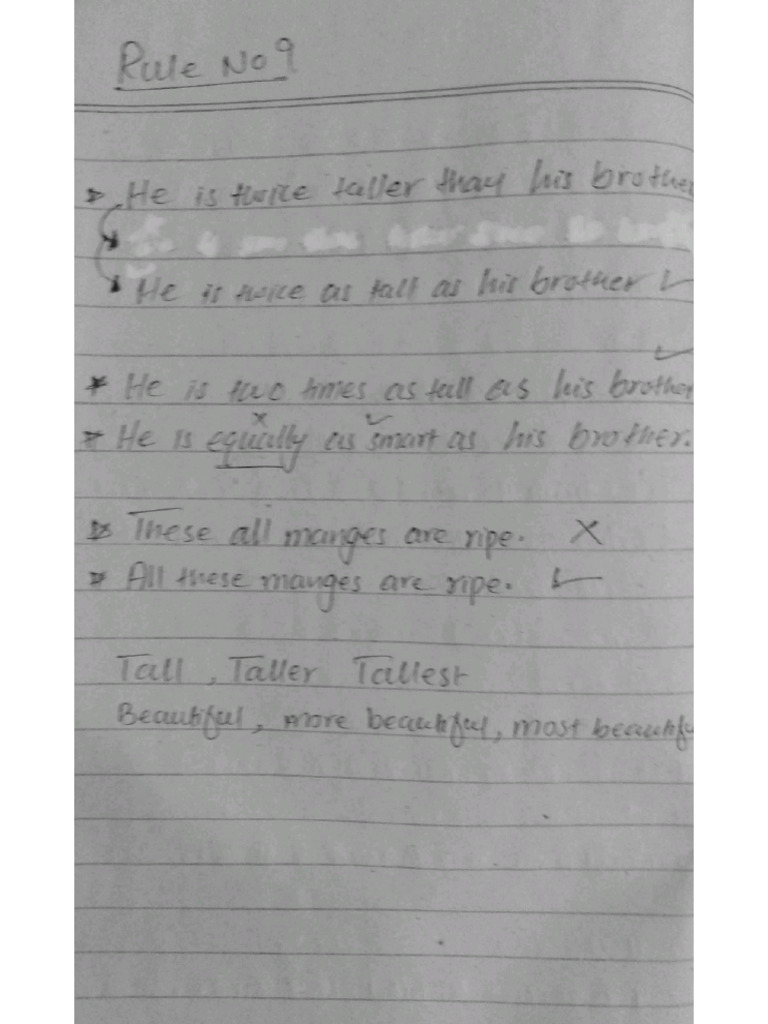 Rule No 9
He is twice taller than his brother
He is twice as tall as his brother ✓
* He is two times as tall as his brother ✓
* He is equally as smart as his brother.
These all manges are ripe. ✗
All these manges are ripe. ✓
Tall, Taller Tallest
Beautiful, more beautiful, most beautifu